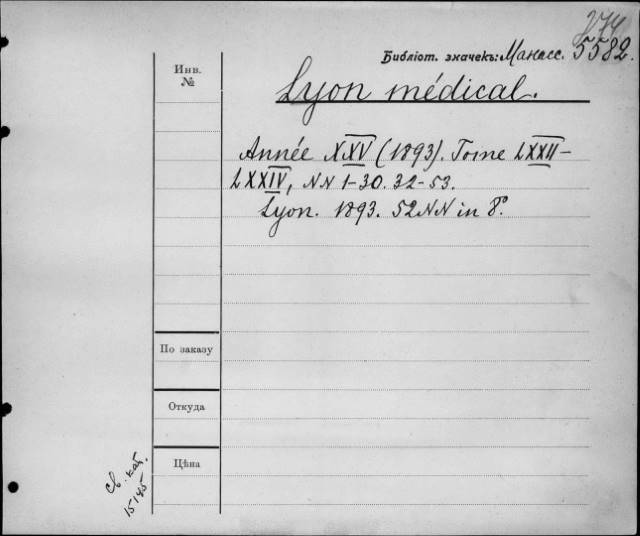 274
Библіот. значекъ: Манасс. 5582.
Инв.
№
Lyon médical.
Année XXV (1893). Tome LXXII-
LXXIV, NN 1-30. 32-53.
Lyon. 1893. 52 NN in 8°.
По заказу
Откуда
Цѣна
св. кат.
15145